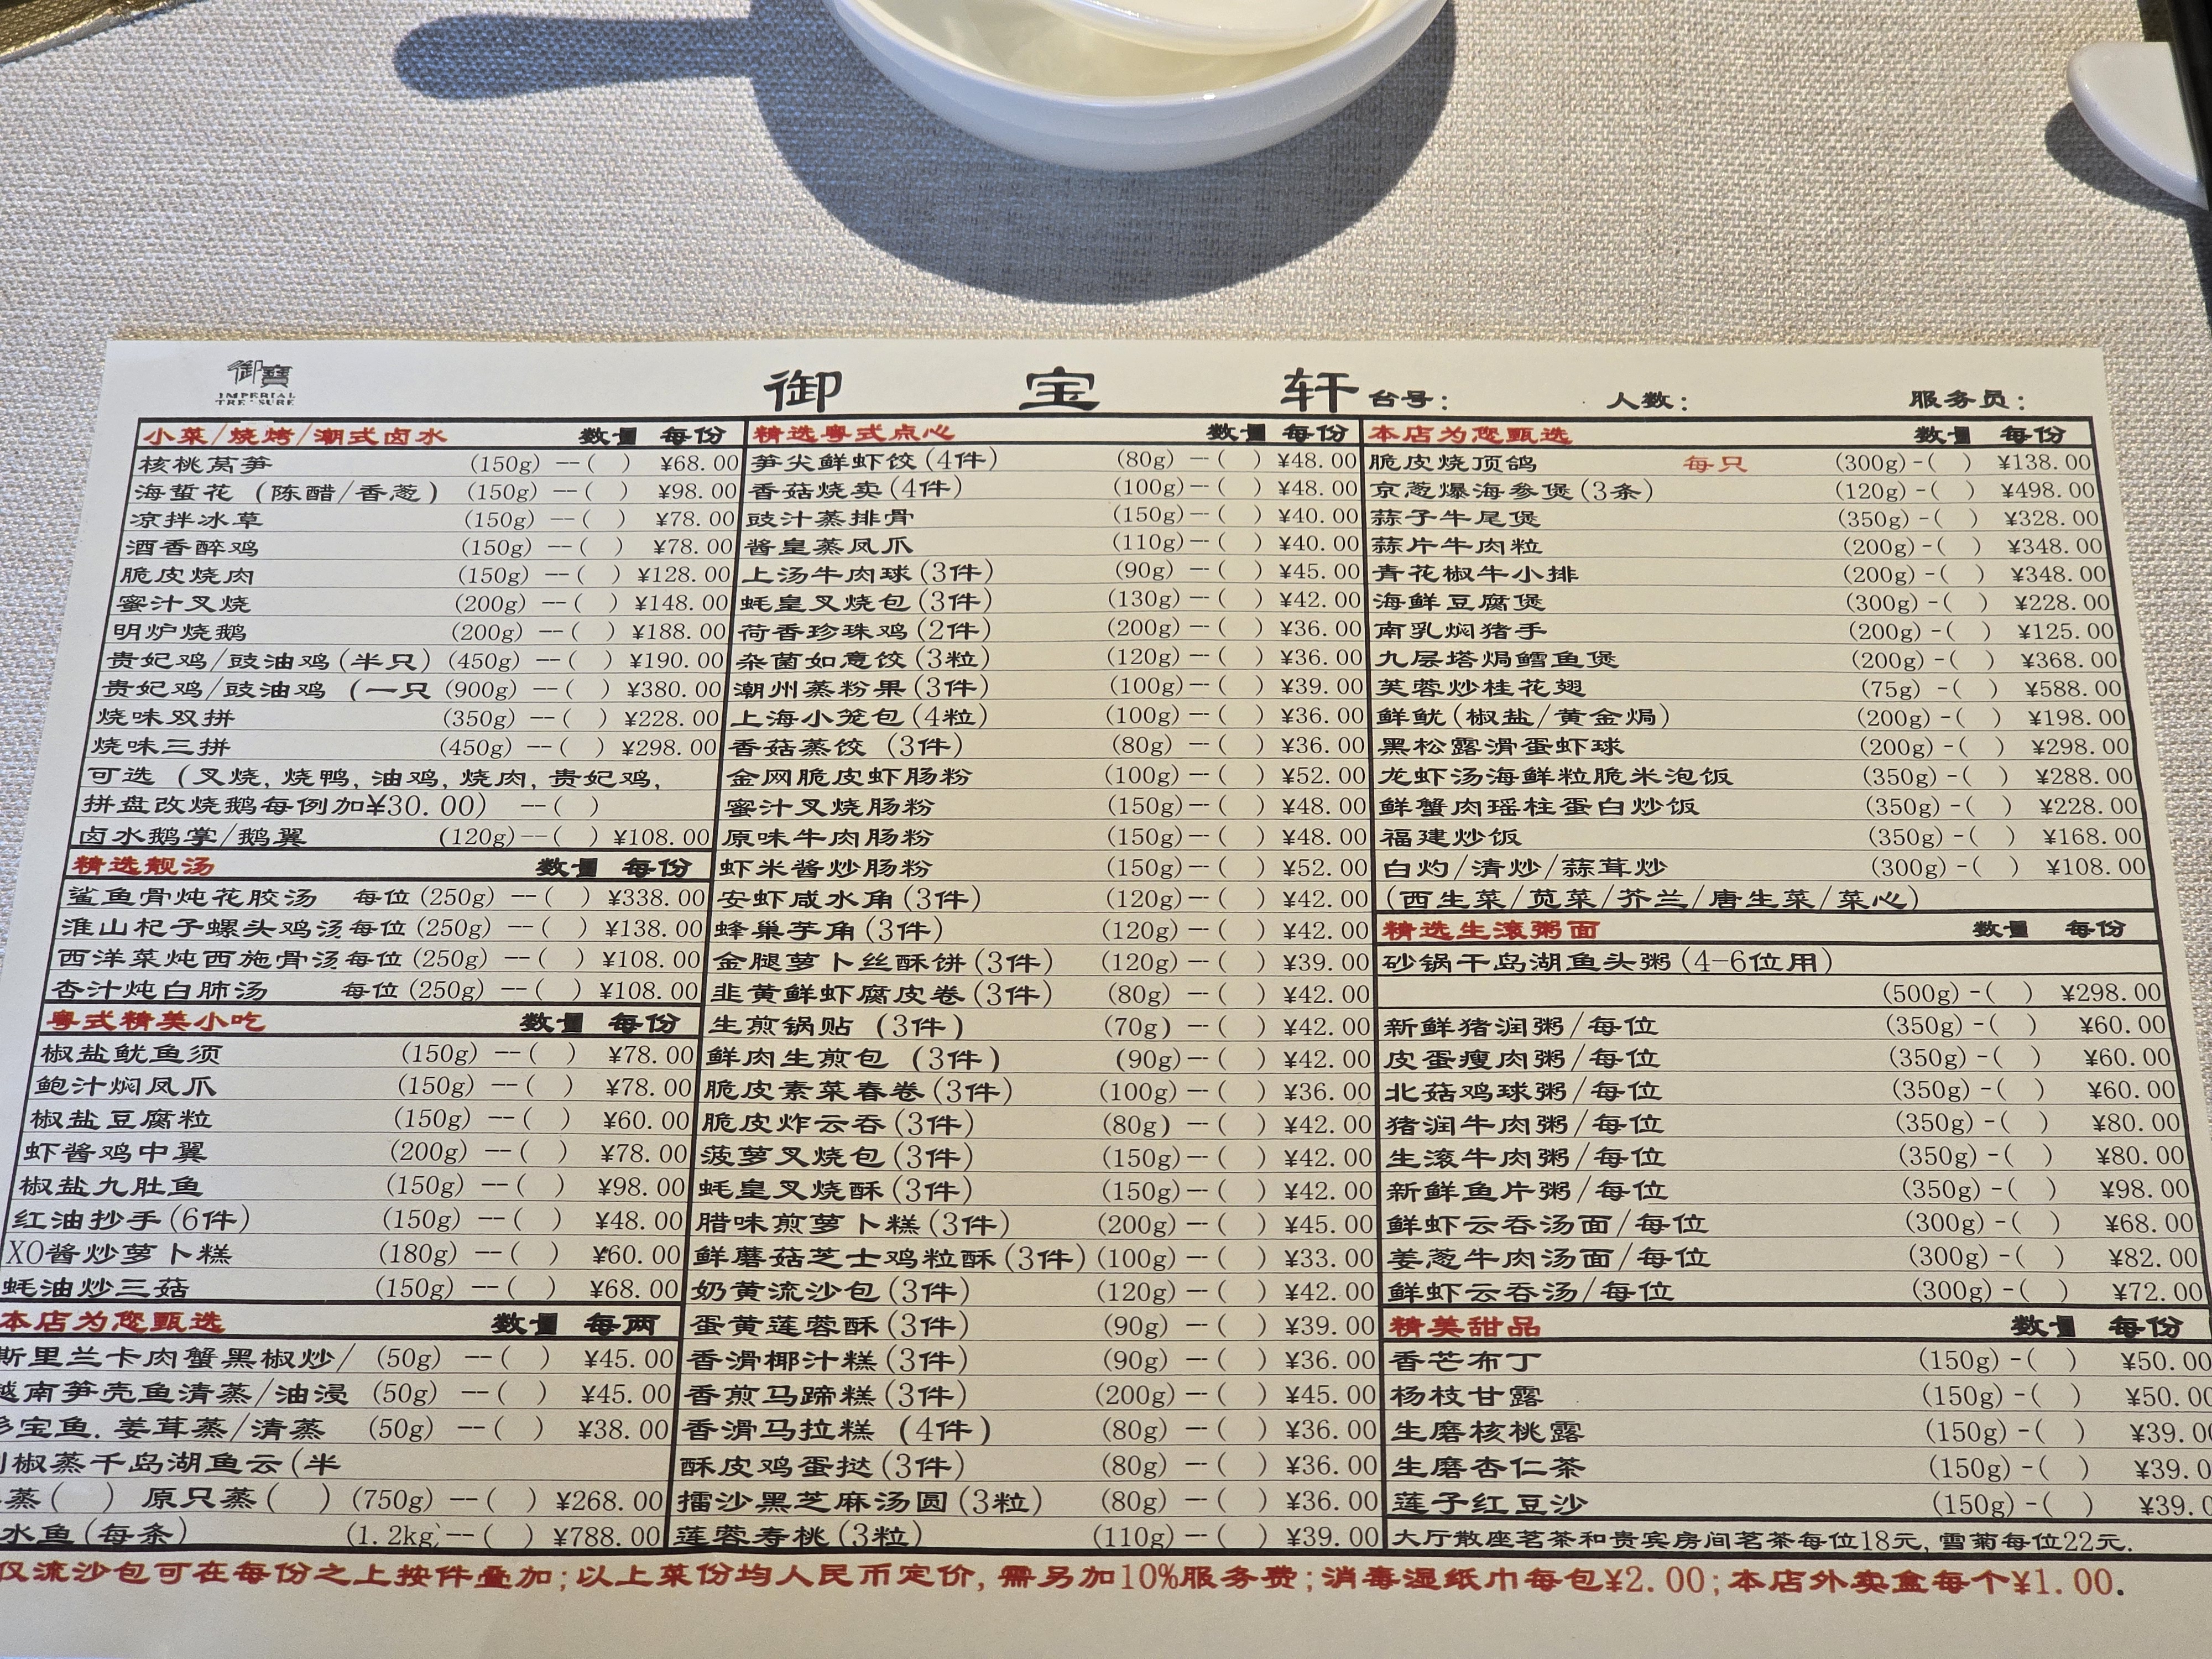 御寶
IMPERIAL
TREASURE
御 宝 轩 台号: 人数: 服务员:
小菜/烧烤/潮式卤水 数量 每份
核桃莴笋 (150g) --( ) ¥68.00
海蜇花 (陈醋/香葱) (150g) --( ) ¥98.00
凉拌冰草 (150g) --( ) ¥78.00
酒香醉鸡 (150g) --( ) ¥78.00
脆皮烧肉 (150g) --( ) ¥128.00
蜜汁叉烧 (200g) --( ) ¥148.00
明炉烧鹅 (200g) --( ) ¥188.00
贵妃鸡/豉油鸡(半只) (450g) --( ) ¥190.00
贵妃鸡/豉油鸡 (一只 (900g) --( ) ¥380.00
烧味双拼 (350g) --( ) ¥228.00
烧味三拼 (450g) --( ) ¥298.00
可选 (叉烧, 烧鸭, 油鸡, 烧肉, 贵妃鸡,
拼盘改烧鹅每例加¥30.00) --( )
卤水鹅掌/鹅翼 (120g)--( ) ¥108.00
精选靓汤 数量 每份
鲨鱼骨炖花胶汤 每位 (250g) --( ) ¥338.00
淮山杞子螺头鸡汤 每位 (250g) --( ) ¥138.00
西洋菜炖西施骨汤 每位 (250g) --( ) ¥108.00
杏汁炖白肺汤 每位 (250g) --( ) ¥108.00
粤式精美小吃 数量 每份
椒盐鱿鱼须 (150g) --( ) ¥78.00
鲍汁焖凤爪 (150g) --( ) ¥78.00
椒盐豆腐粒 (150g) --( ) ¥60.00
虾酱鸡中翼 (200g) --( ) ¥78.00
椒盐九肚鱼 (150g) --( ) ¥98.00
红油抄手(6件) (150g) --( ) ¥48.00
XO酱炒萝卜糕 (180g) --( ) ¥60.00
蚝油炒三菇 (150g) --( ) ¥68.00
本店为您甄选 数量 每两
斯里兰卡肉蟹黑椒炒/ (50g) --( ) ¥45.00
越南笋壳鱼清蒸/油浸 (50g) --( ) ¥45.00
宝鱼. 姜茸蒸/清蒸 (50g) --( ) ¥38.00
椒蒸千岛湖鱼云(半
蒸( ) 原只蒸( ) (750g) --( ) ¥268.00
水鱼(每条) (1.2kg)--( ) ¥788.00
精选粤式点心 数量 每份
笋尖鲜虾饺(4件) (80g) --( ) ¥48.00
香菇烧卖(4件) (100g) --( ) ¥48.00
豉汁蒸排骨 (150g) --( ) ¥40.00
酱皇蒸凤爪 (110g)--( ) ¥40.00
上汤牛肉球(3件) (90g) --( ) ¥45.00
蚝皇叉烧包(3件) (130g) --( ) ¥42.00
荷香珍珠鸡(2件) (200g) --( ) ¥36.00
杂菌如意饺(3粒) (120g) --( ) ¥36.00
潮州蒸粉果(3件) (100g)--( ) ¥39.00
上海小笼包(4粒) (100g) --( ) ¥36.00
香菇蒸饺 (3件) (80g) --( ) ¥36.00
金网脆皮虾肠粉 (100g)--( ) ¥52.00
蜜汁叉烧肠粉 (150g)--( ) ¥48.00
原味牛肉肠粉 (150g)--( ) ¥48.00
虾米酱炒肠粉 (150g)--( ) ¥52.00
安虾咸水角(3件) (120g) --( ) ¥42.00
蜂巢芋角(3件) (120g) --( ) ¥42.00
金腿萝卜丝酥饼(3件) (120g) --( ) ¥39.00
韭黄鲜虾腐皮卷(3件) (80g) --( ) ¥42.00
生煎锅贴 (3件) (70g) --( ) ¥42.00
鲜肉生煎包 (3件) (90g)--( ) ¥42.00
脆皮素菜春卷(3件) (100g) --( ) ¥36.00
脆皮炸云吞(3件) (80g) --( ) ¥42.00
菠萝叉烧包(3件) (150g) --( ) ¥42.00
蚝皇叉烧酥(3件) (150g) --( ) ¥42.00
腊味煎萝卜糕(3件) (200g) --( ) ¥45.00
鲜蘑菇芝士鸡粒酥(3件) (100g) --( ) ¥33.00
奶黄流沙包(3件) (120g) --( ) ¥42.00
蛋黄莲蓉酥(3件) (90g) --( ) ¥39.00
香滑椰汁糕(3件) (90g) --( ) ¥36.00
香煎马蹄糕(3件) (200g) --( ) ¥45.00
香滑马拉糕 (4件) (80g) --( ) ¥36.00
酥皮鸡蛋挞(3件) (80g) --( ) ¥36.00
擂沙黑芝麻汤圆(3粒) (80g) --( ) ¥36.00
莲蓉寿桃(3粒) (110g) --( ) ¥39.00
本店为您甄选 数量 每份
脆皮烧顶鸽 每只 (300g)-( ) ¥138.00
京葱爆海参煲(3条) (120g)-( ) ¥498.00
蒜子牛尾煲 (350g)-( ) ¥328.00
蒜片牛肉粒 (200g)-( ) ¥348.00
青花椒牛小排 (200g)-( ) ¥348.00
海鲜豆腐煲 (300g)-( ) ¥228.00
南乳焖猪手 (200g)-( ) ¥125.00
九层塔焗鳕鱼煲 (200g)-( ) ¥368.00
芙蓉炒桂花翅 (75g)-( ) ¥588.00
鲜鱿(椒盐/黄金焗) (200g)-( ) ¥198.00
黑松露滑蛋虾球 (200g)-( ) ¥298.00
龙虾汤海鲜粒脆米泡饭 (350g)-( ) ¥288.00
鲜蟹肉瑶柱蛋白炒饭 (350g)-( ) ¥228.00
福建炒饭 (350g)-( ) ¥168.00
白灼/清炒/蒜茸炒 (300g)-( ) ¥108.00
(西生菜/苋菜/芥兰/唐生菜/菜心)
精选生滚粥面 数量 每份
砂锅千岛湖鱼头粥(4-6位用)
(500g)-( ) ¥298.00
新鲜猪润粥/每位 (350g)-( ) ¥60.00
皮蛋瘦肉粥/每位 (350g)-( ) ¥60.00
北菇鸡球粥/每位 (350g)-( ) ¥60.00
猪润牛肉粥/每位 (350g)-( ) ¥80.00
生滚牛肉粥/每位 (350g)-( ) ¥80.00
新鲜鱼片粥/每位 (350g)-( ) ¥98.00
鲜虾云吞汤面/每位 (300g)-( ) ¥68.00
姜葱牛肉汤面/每位 (300g)-( ) ¥82.00
鲜虾云吞汤/每位 (300g)-( ) ¥72.00
精美甜品 数量 每份
香芒布丁 (150g)-( ) ¥50.00
杨枝甘露 (150g)-( ) ¥50.00
生磨核桃露 (150g)-( ) ¥39.00
生磨杏仁茶 (150g)-( ) ¥39.0
莲子红豆沙 (150g)-( ) ¥39.0
大厅散座茗茶和贵宾房间茗茶每位18元, 雪菊每位22元.
仅流沙包可在每份之上按件叠加;以上菜份均人民币定价, 需另加10%服务费;消毒湿纸巾每包¥2.00;本店外卖盒每个¥1.00.